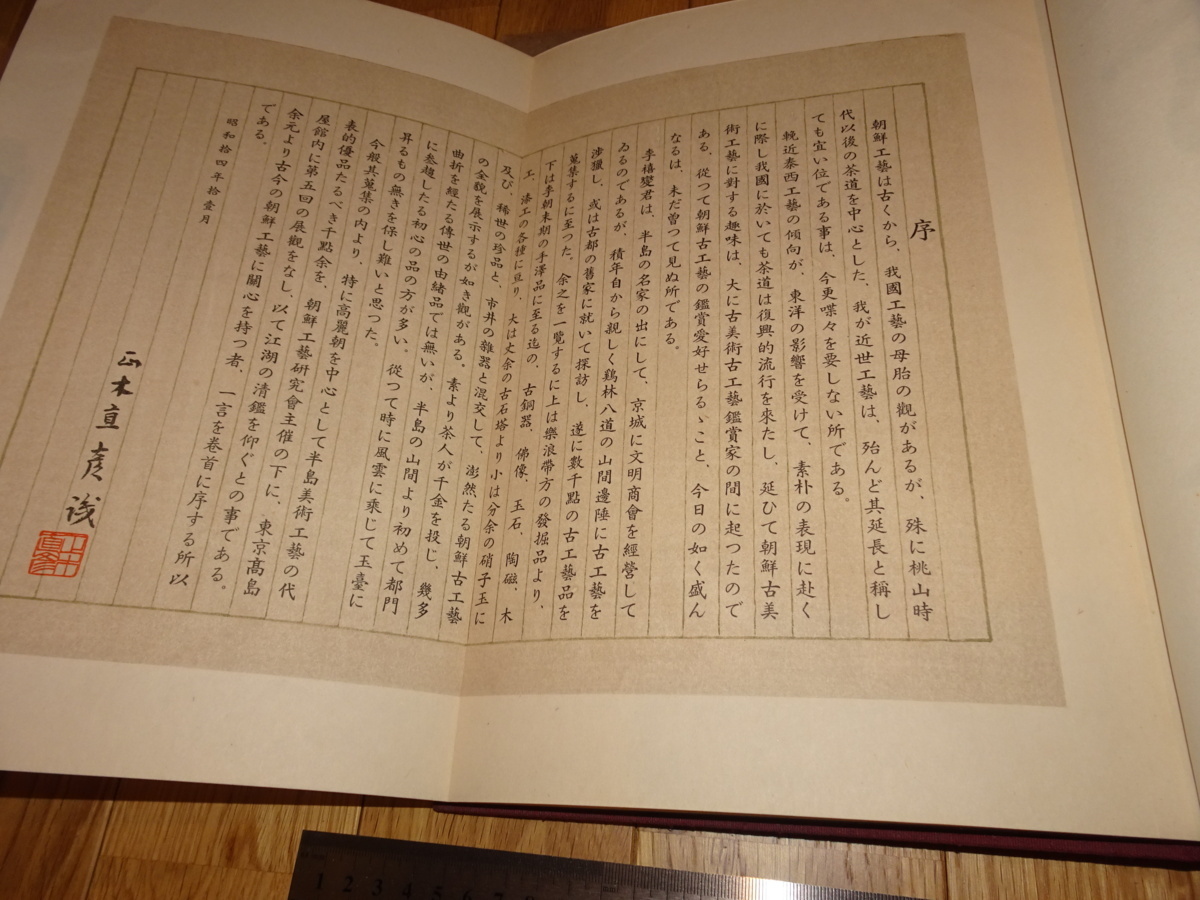 序
朝鮮工藝は古くから、我國工藝の母胎の觀があるが、殊に桃山時
代以後の茶道を中心とした、我が近世工藝は、殆んど其延長と稱し
ても宜い位である事は、今更喋々を要しない所である。
輓近泰西工藝の傾向が、東洋の影響を受けて、素朴の表現に赴く
に際し我國に於いても茶道は復興的流行を來たし、延ひて朝鮮古美
術工藝に對する趣味は、大に古美術古工藝鑑賞家の間に起つたので
ある、從つて朝鮮古工藝の鑑賞愛好せらるゝこと、今日の如く盛ん
なるは、未だ曽つて見ぬ所である。
李禧燮君は、半島の名家の出にして、京城に文明商會を經營して
ゐるのであるが、積年自から親しく鷄林八道の山間邊陲に古工藝を
涉獵し、或は古都の舊家に就いて探訪し、遂に數千點の古工藝品を
蒐集するに至つた、余之を一覽するに上は樂浪帶方の發掘品より、
下は李朝末期の手澤品に至る迄の、古銅器、佛像、玉石、陶磁、木
工、漆工の各種に亘り、大は丈余の古石塔より小は分余の硝子玉に
及び、稀世の珍品と、市井の雜器と混交して、澎然たる朝鮮古工藝
の全貌を展示するが如き觀がある。素より茶人が千金を投じ、幾多
曲折を經たる傳世の由緒品では無いが、半島の山間より初めて都門
に參趨したる初心の品の方が多い。從つて時に風雲に乘じて玉臺に
昇るもの無きを保し難いと思つた。
今般其蒐集の内より、特に高麗朝を中心として半島美術工藝の代
表的優品たるべき千點余を、朝鮮工藝研究會主催の下に、東京高島
屋館内に第五回の展觀をなし、以て江湖の清鑑を仰ぐとの事である。
余元より古今の朝鮮工藝に關心を持つ者、一言を卷首に序する所以
である。
昭和拾四年拾壹月
正木直彦識
1 2 3 4 5 6 7 8